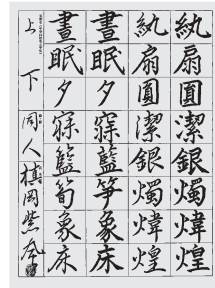 紈扇圓潔銀燭煒煌
紈扇圓潔銀燭煒煌
晝眠夕寐籃笋象床
晝眠夕寐籃筍象床
上下 同人